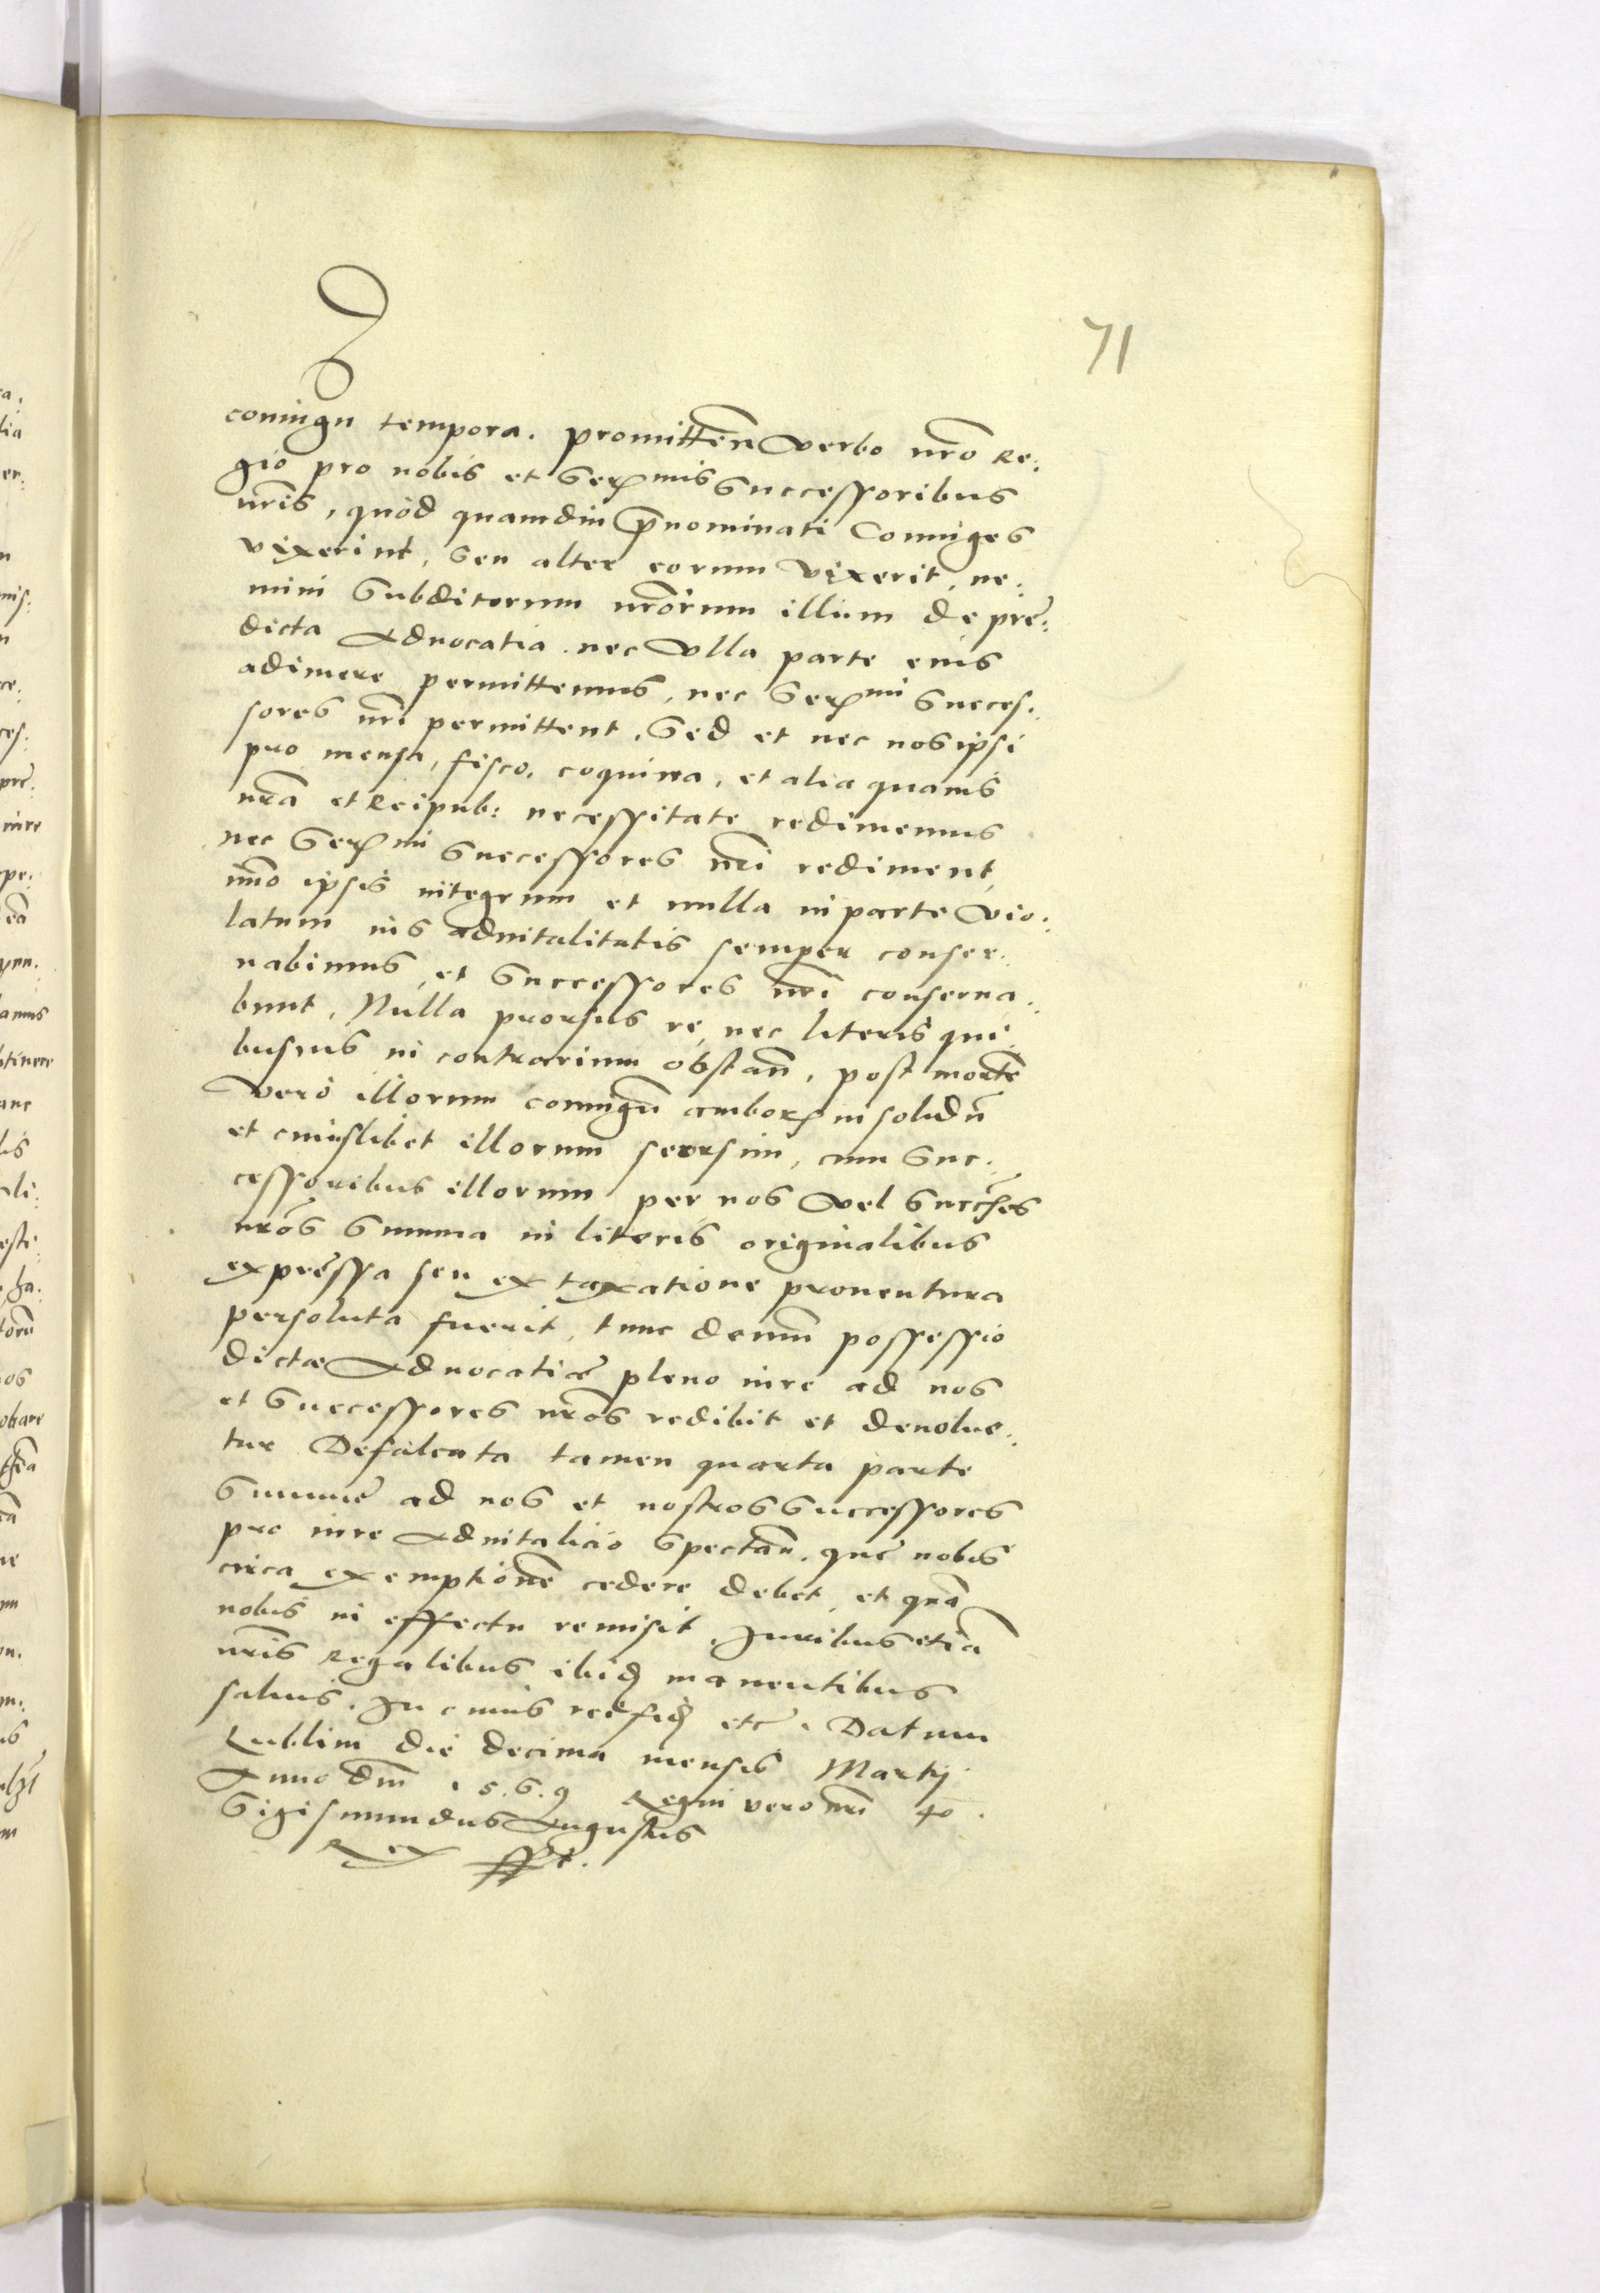 71
coniugu tempora. promitten̄ Verbo nr̄o Re:
gio pro nobis et Serꝫmis Successoribus
nr̄is, quòd quamdiu p̄nominati Coniuges
vixerint, seu alter eorum vixerit, ne:
mini Subditorum nr̄orum illum de præ:
dicta Aduocatia nec Vlla parte eius
adimere permittemus, nec Serꝫmi Succes:
sores nr̄i permittent. Sed et nec nos ipsi
pro mensa, fisco, coquina, et alia quauis
nr̄a et Reipub: necessitate redimemus
nec Serꝫmi Successores nr̄i rediment,
imò ipsis integrum et nulla in parte Vio:
latum ius aduitalitatis semper conser:
uabimus, et Successores nr̄i conserua:
bunt, Nulla prorsus re, nec literis qui:
busuis in contrarium obstan̄, post mortē
Verò illorum coniugū amborꝫ in solidū
et cuiuslibet illorum seorsim, cum Suc:
cessoribus illorum per nos Vel Succes̄es
nr̄os Summa in literis originalibus
expressa seu ex taxatione prouentura
persoluta fuerit, tunc demū possessio
dictæ Aduocatiæ pleno iure ad nos
et Successores nr̄os redibit et deuolue:
tur Defalcata tamen quarta parte
Summæ ad nos et nostros Successores
pro iure Aduitalicio Spectan̄. quæ nobis
circa exemptionē cedere debet, et quā
nobis in effectu remisit. Iuribus etiā
nr̄is Regalibus ibidꝫ manentibus
saluis. In cuius rei fidꝫ etc. Datum
Lublini die decima mensis Martij
Anno Dn̄i 1.5.6.9 Regni vero nr̄i 40.
Sigismundus Augustus
Rex sst.